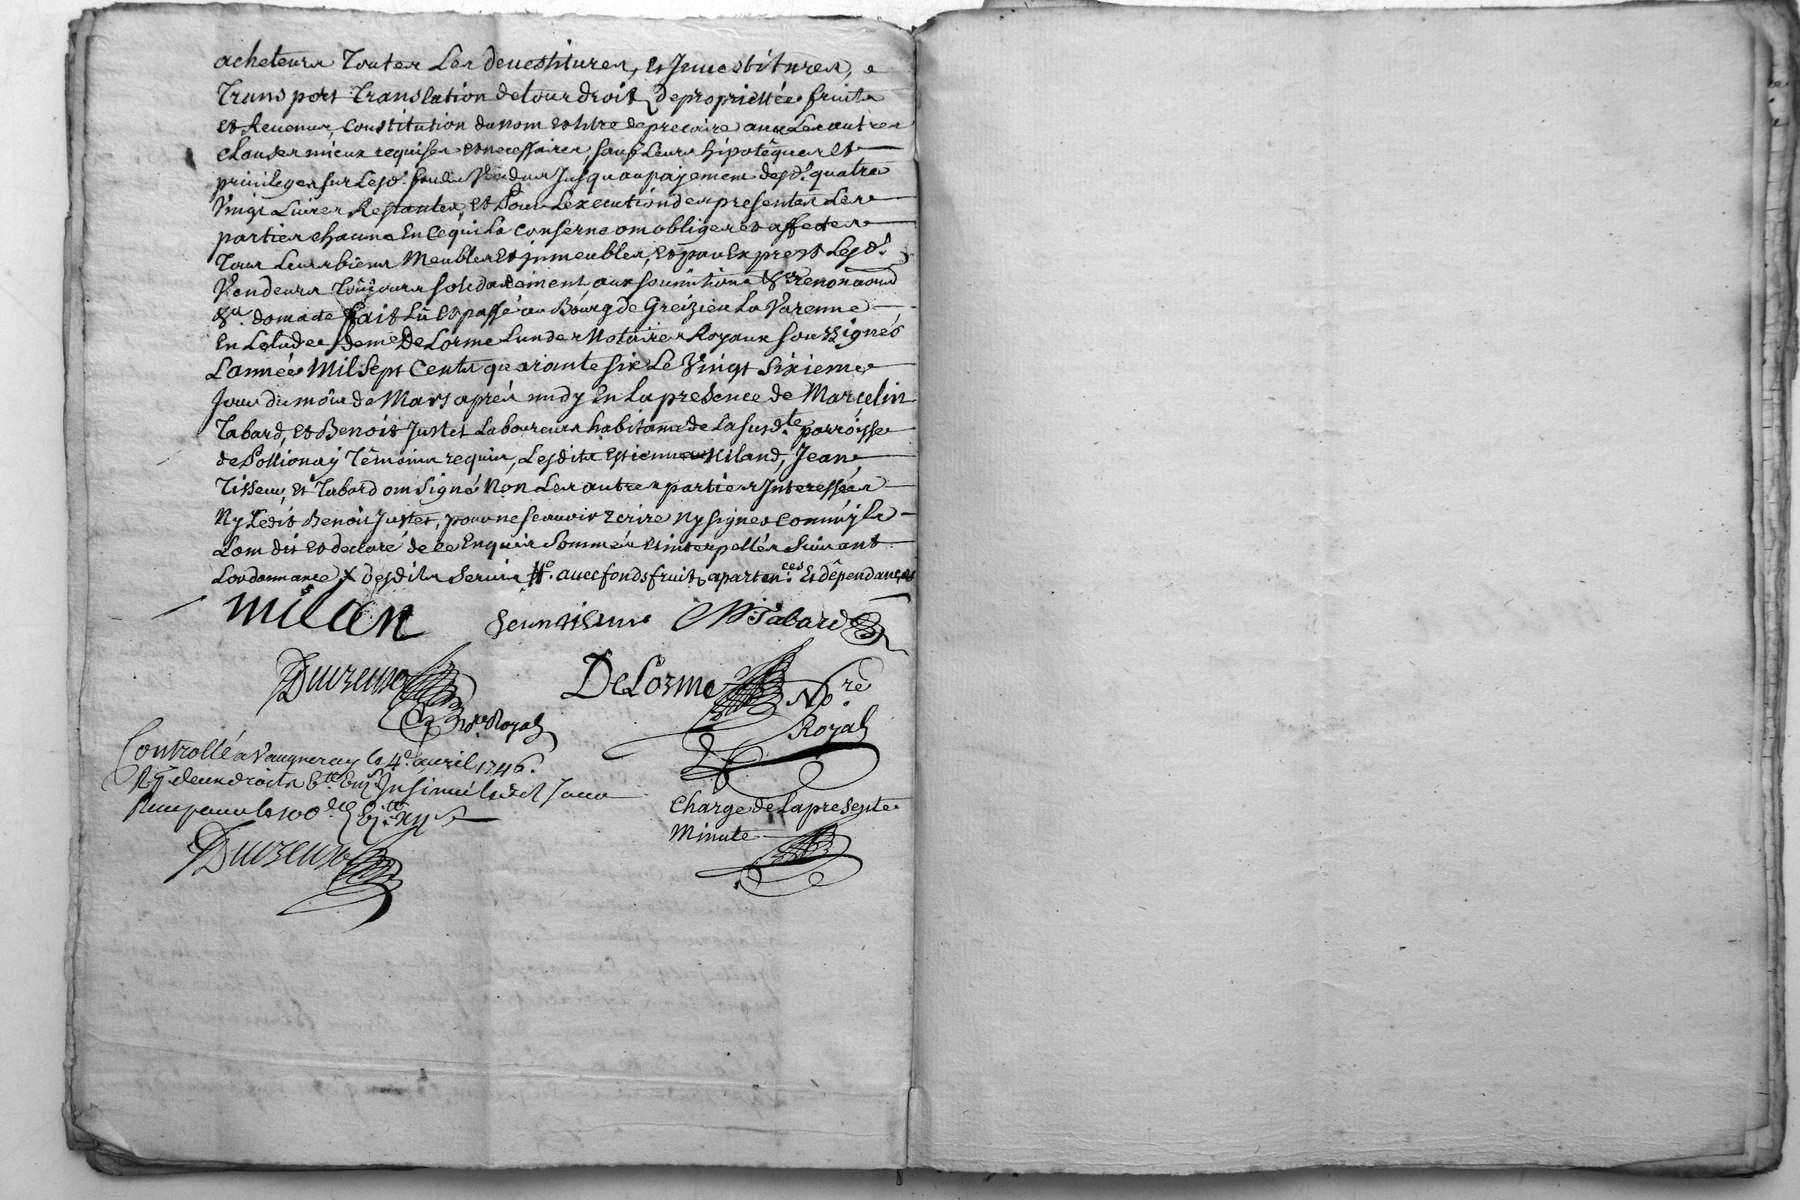 acheteurs Toutes Les devestitures, et Jnvestitures, e
Transport Translation de tour droits de proprietées fruits
et Revenus, Constitution du nom et titre de precaire avec Les autres
Clauses mieux requises et necessaires, sauf Leurs hipotêques et
privileges sur Lesd. fonds Vendus Jusqu au payement desd. quatre
Vingt Livres Restantes, et Pour L'execution des presentes Les
parties chacune En ce qui La conserne ont obligés et affectés
Tous Leurs biens Meubles et jmmeubles, et par Exprest Lesd.
Vendeurs Toûjours solidairement, aux soumitions &a renonaons
&a. dont acte fait Lû et passé au Bourg de Greizieu La Varenne
En L'etude de me DeLorme L'un des Notaires Royaux soussignés
L'année Mil Sept Cents quarante six Le Vingt Sixieme
Jour du mois de Mars aprés midy En La presence de Marcelin
Tabard, et Benoit Justet Laboureurs habitants de La susdte parroisse
de Pollionaÿ Têmoins requis, Lesdits Estienne Miland, Jean
Tisseur, et Tabard ont signé Non Les autres parties Jnteressées
Ny Ledit Benoit Justet, pour ne scavoir Ecrire Ny signer comm' jls
L'ont dit et declaré de ce Enquis Sommés et interpellés Suivant
L'ordonnance X desdits Servis #. avec fonds fruits apartences Et dêpendances
milan Jean tiseur M Tabard
Duvzeuro DeLorme Nore
Nre Royal Royal
Controllé a Vaugneray le 4e avril 1746.
Charge de La presente
Minute